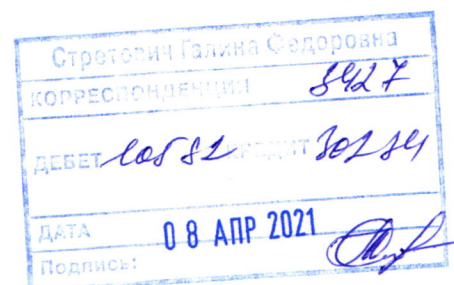 Стретович Галина Федоровна
КОРРЕСПОНДЕНЦИЯ 8427
ДЕБЕТ КРЕДИТ
ДАТА 08 АПР 2021
Подпись: